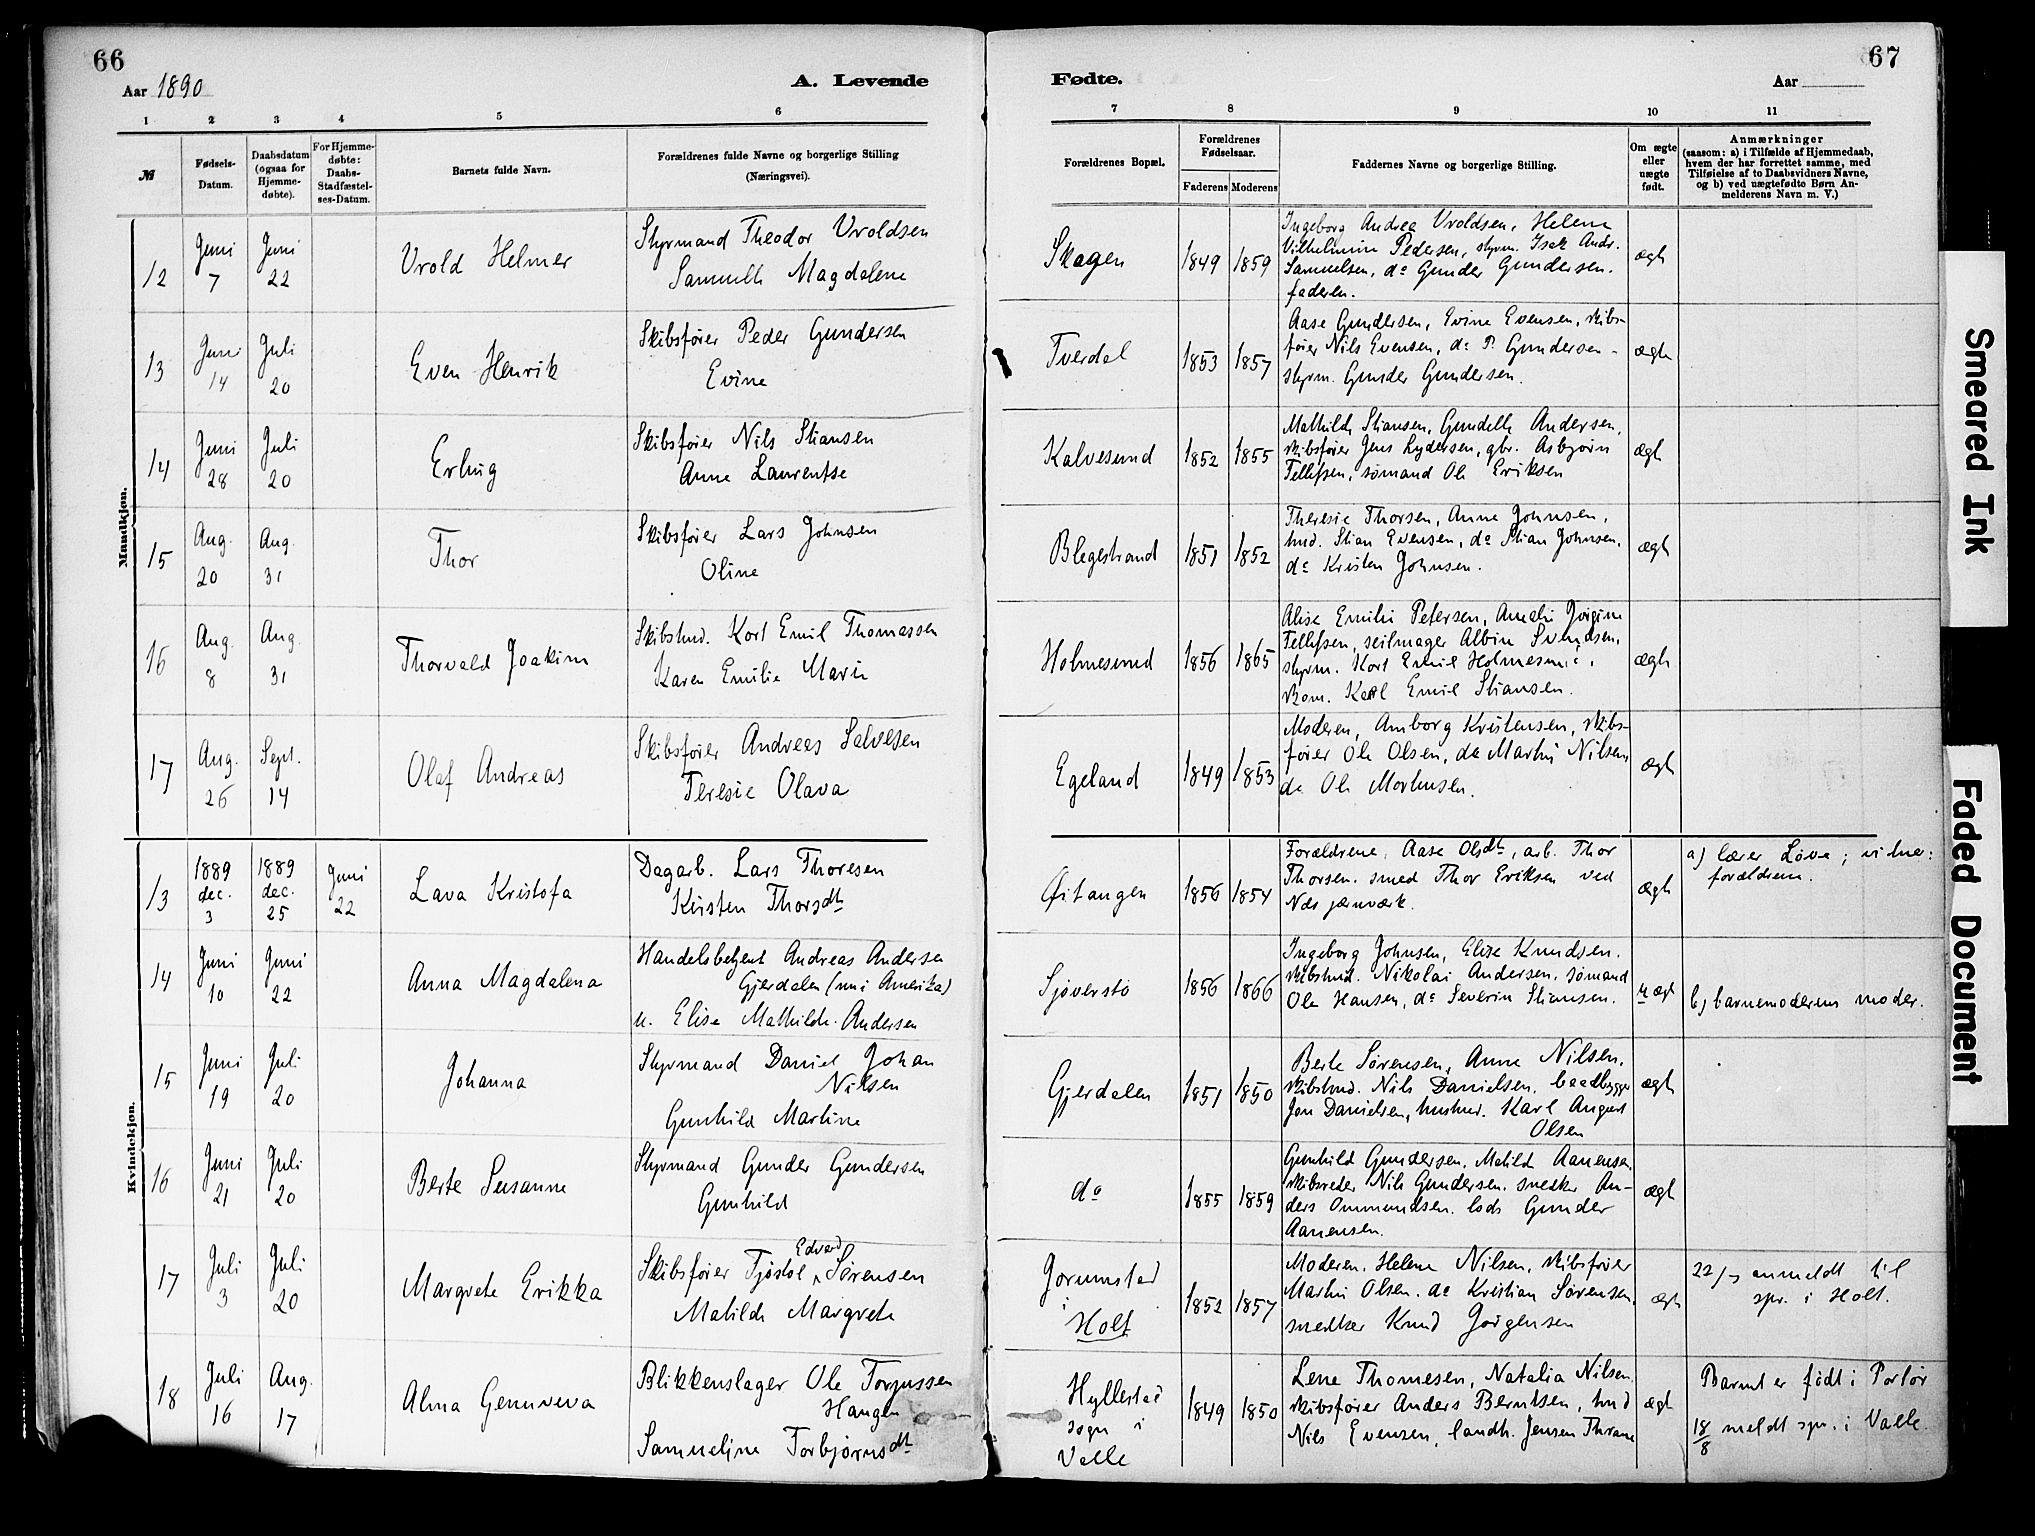 66
Aar 1890
A. Levende
1 2 3 4 5 6
№
Fødsels-
Datum.
Daabsdatum
(ogsaa for
Hjemme-
døbte).
For Hjemme-
døbte:
Daabs-
Stadfæstel-
ses-Datum.
Barnets fulde Navn.
Forældrenes fulde Navne og borgerlige Stilling
(Næringsvei).
Mandkjøn.
12 Juni 7 Juni 22 Vrold Helmer
Styrmand Theodor Vroldsen
Samuelle Magdalene
13 Juni 14 Juli 20 Even Henrik
Skibsfører Peder Gundersen
Evine
14 Juni 28 Juli 20 Erling
Skibsfører Nils Stiansen
Anne Laurentse
15 Aug. 20 Aug. 31 Thor
Skibsfører Lars Johnsen
Oline
16 Aug. 8 Aug. 31 Thorvald Joakim
Skibstmd. Kort Emil Thomassen
Karen Emilie Marie
17 Aug. 26 Sept. 14 Olaf Andreas
Skibsfører Andreas Salvesen
Teresie Olava
Kvindekjøn.
13 1889 dec. 3 1889 dec. 25 Juni 22 Lava Kristofa
Dagarb. Lars Thoresen
Kirsten Thorsdt
14 Juni 10 Juni 22 Anna Magdalena
Handelsbetjent Andreas Andersen
Gjerdalen (nu i Amerika)
u. Elise Mathilde Andersen
15 Juni 19 Juli 20 Johanna
Styrmand Daniel Johan
Nilsen
Gunhild Martine
16 Juni 21 Juli 20 Berte Susanne
Styrmand Gunder Gundersen
Gunhild
17 Juli 3 Juli 20 Margrete Erikka
Edvard
Skibsfører Tjøstol Sørensen
Matilde Margrete
18 Juli 16 Aug. 17 Alma Genoveva
Blikkenslager Ole Torjussen
Haugen
Samueline Torbjørnsdt
67
Fødte.
Aar
7 8 9 10 11
Forældrenes Bopæl.
Forældrenes
Fødselsaar.
Faderens Moderens
Faddernes Navne og borgerlige Stilling.
Om ægte
eller
uægte
født.
Anmærkninger
(saasom: a) i Tilfælde af Hjemmedaab,
hvem der har forrettet samme, med
Tilføielse af to Daabsvidners Navne,
og b) ved uægtefødte Børn An-
melderens Navn m. V.)
Skagen 1849 1859 ægte
Ingeborg Andrea Vroldsen, Helene
Vilhelmine Pedersen, styrm. Isak Andr.
Samuelsen, do Gunder Gundersen.
faderen.
Tverdal 1853 1857 ægte
Aase Gundersen, Evine Evensen, skibs-
fører Nils Evensen, do P. Gundersen -
styrm. Gunder Gundersen.
Kalvesund 1852 1855 ægte
Mathilde Stiansen, Gundelle Andersen,
skibsfører Jens Lydersen, gbr. Asbjørn
Tellefsen, sømand Ole Eriksen
Blegestrand 1851 1852 ægte
Theresie Thorsen, Anne Johnsen,
hmd. Stian Evensen, do Stian Johnsen,
do Kristen Johnsen.
Holmesund 1856 1865 ægte
Alise Emilie Petersen, Amalie Jørgine
Tellefsen, seilmager Albin Svendsen,
styrm. Kort Emil Holmesund,
Karl Emil Stiansen.
Egeland 1849 1853 ægte
Moderen, Amborg Kristensen, skibs-
fører Ole Olsen, do Martin Nilsen
do Ole Mortensen.
Østangen 1856 1854 ægte
Forældrene, Aase Olsdt, arb. Thor
Thorsen. smed Thor Eriksen ved
Næs jernværk.
a) lærer Løve; vidne:
forældrene.
Sjøverstø 1856 1866 uægt
Ingeborg Johnsen, Elise Knudsen.
skibstmd. Nikolai Andersen. sømand
Ole Hansen, do Severin Stiansen.
b) barnemoderens moder.
Gjerdalen 1851 1850 ægte
Berte Sørensen, Anne Nilsen.
skibstmd. Nils Danielsen. baadbygger
Jon Danielsen, husmd. Karl August
Olsen
do 1855 1859 ægte
Gunhild Gundersen. Matilde Aanensen,
skibsreder Nils Gundersen. snedker An-
ders Ommundsen. lods Gunder
Aanensen.
Gorumstad
i
Holt
1852 1857 ægte
Moderen. Helene Nilsen, skibsfører
Martin Olsen. do Kristian Sørensen.
snedker Knud Jørgensen
22/7 anmeldt til
spr. i Holt.
Hyllestad
sogn i
Valle
1849 1850 ægte
Lene Thomesen, Natalia Nilsen.
skibsfører Anders Berntsen, hmd
Nils Evensen, landh. Jensen Thrane
Barnet er født i Portør
18/8 meldt spr. i Valle.
Smeared Ink
Faded Document